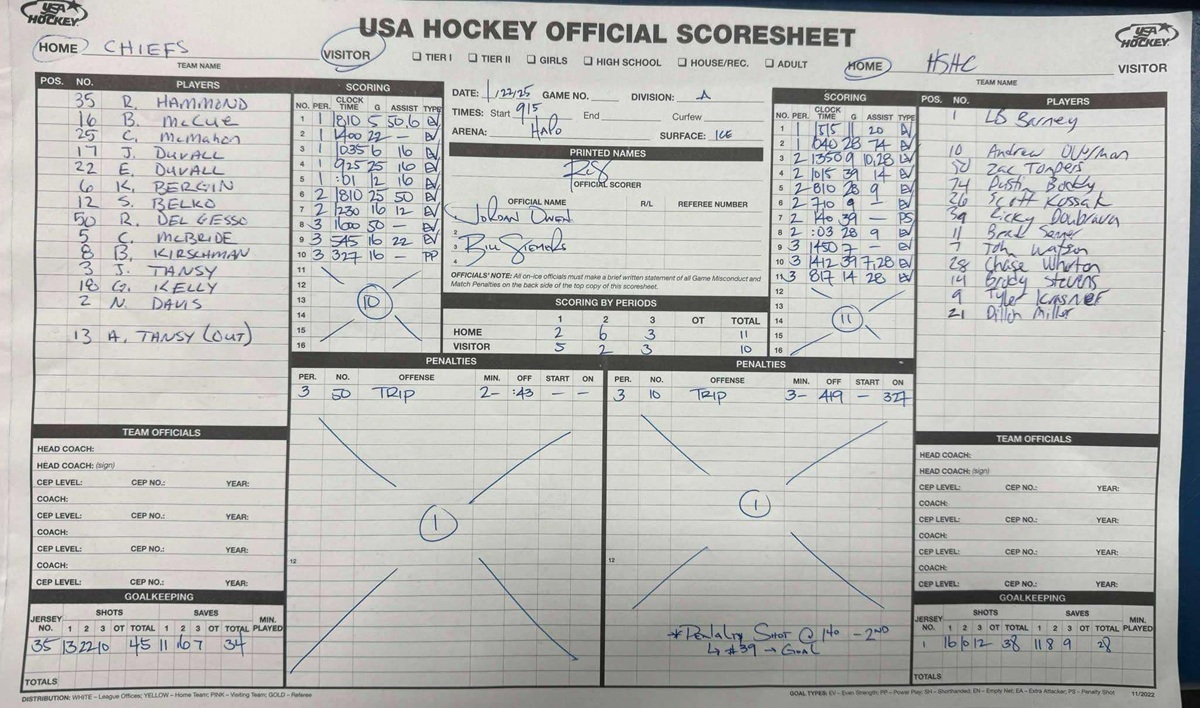 USA HOCKEY
USA HOCKEY OFFICIAL SCORESHEET
USA HOCKEY
HOME CHIEFS VISITOR
TEAM NAME
☐ TIER I ☐ TIER II ☐ GIRLS ☐ HIGH SCHOOL ☐ HOUSE/REC. ☐ ADULT
HOME HSHC VISITOR
TEAM NAME
POS. NO. PLAYERS
35 R. HAMMOND
16 B. McCUE
25 C. McMahon
17 J. DUVALL
22 E. DUVALL
6 K. BERGIN
12 S. BELKO
50 R. DEL GESSO
5 C. McBRIDE
8 B. KIRSCHMAN
3 J. TANSY
18 G. KELLY
2 N. DAVIS
13 A. TANSY (OUT)
SCORING
NO. PER. CLOCK TIME G ASSIST TYPE
1 1 1810 5 50,6 EV
2 1 1400 22 — EV
3 1 1035 6 16 EV
4 1 925 25 16 EV
5 1 :01 12 16 EV
6 2 1810 25 50 EV
7 2 1230 16 12 EV
8 3 1600 50 — EV
9 3 545 16 22 EV
10 3 327 16 — PP
11
12
13
14
15
16
10
DATE: 1/22/25 GAME NO. DIVISION: A
TIMES: Start 915 End Curfew
ARENA: HALO SURFACE: ICE
PRINTED NAMES
OFFICIAL SCORER
OFFICIAL NAME R/L REFEREE NUMBER
Jordan Owen
2
3 Bill Siemers
4
OFFICIALS' NOTE: All on-ice officials must make a brief written statement of all Game Misconduct and
Match Penalties on the back side of the top copy of this scoresheet.
SCORING BY PERIODS
1 2 3 OT TOTAL
HOME 2 6 3 11
VISITOR 5 2 3 10
SCORING
NO. PER. CLOCK TIME G ASSIST TYPE
1 1 1515 11 20 EV
2 1 040 28 74 EV
3 2 1350 9 10,28 EV
4 2 1015 39 14 EV
5 2 810 28 9 EV
6 2 710 9 — EV
7 2 140 39 — PS
8 2 :03 28 9 EV
9 3 1450 7 — EV
10 3 1412 39 7,28 EV
11 3 817 14 28 EV
12
13
14
15
16
11
POS. NO. PLAYERS
1 LB Barney
10 Andrew
Zac
74 Dustin
26 Scott Kossak
39 Ricky Doubrava
11 Brad
7 John Watson
28 Chase Whorton
14 Brody Stevens
9 Tyler
21 Dillon Miller
PENALTIES
PER. NO. OFFENSE MIN. OFF START ON
3 50 TRIP 2- :43 — —
1
12
PENALTIES
PER. NO. OFFENSE MIN. OFF START ON
3 10 TRIP 3- 419 — 327
1
12
*Penalty Shot @ 140 - 2ND
↳ #39 → GOAL
TEAM OFFICIALS
HEAD COACH:
HEAD COACH: (sign)
CEP LEVEL: CEP NO.: YEAR:
COACH:
CEP LEVEL: CEP NO.: YEAR:
COACH:
CEP LEVEL: CEP NO.: YEAR:
COACH:
CEP LEVEL: CEP NO.: YEAR:
GOALKEEPING
SHOTS SAVES
JERSEY NO. 1 2 3 OT TOTAL 1 2 3 OT TOTAL MIN. PLAYED
35 13 22 10 45 11 16 7 34
TOTALS
TEAM OFFICIALS
HEAD COACH:
HEAD COACH: (sign)
CEP LEVEL: CEP NO.: YEAR:
COACH:
CEP LEVEL: CEP NO.: YEAR:
COACH:
CEP LEVEL: CEP NO.: YEAR:
COACH:
CEP LEVEL: CEP NO.: YEAR:
GOALKEEPING
SHOTS SAVES
JERSEY NO. 1 2 3 OT TOTAL 1 2 3 OT TOTAL MIN. PLAYED
1 16 10 12 38 11 8 9 28
TOTALS
DISTRIBUTION: WHITE – League Offices; YELLOW – Home Team; PINK – Visiting Team; GOLD – Referee
GOAL TYPES: EV – Even Strength; PP – Power Play; SH – Shorthanded; EN – Empty Net; EA – Extra Attacker; PS – Penalty Shot 11/2022